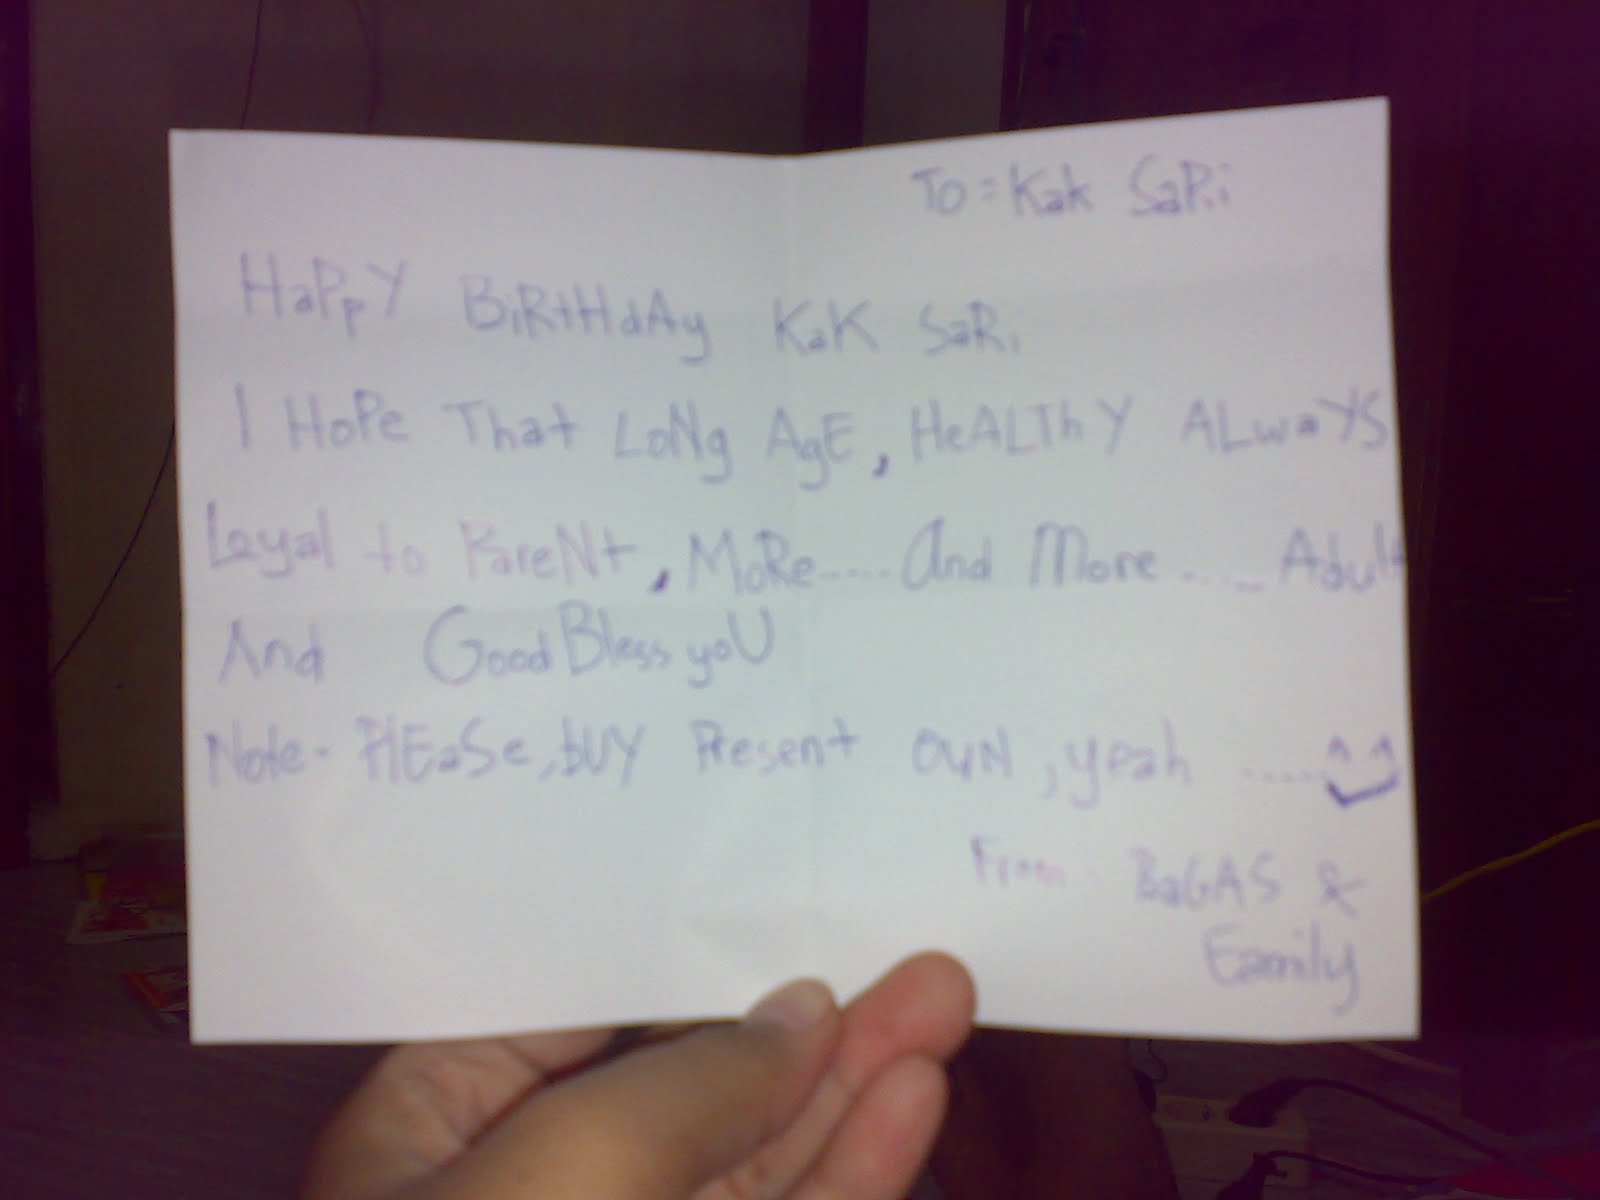 To = Kak SaRi
HaPpY BiRtHdAy KaK SaRi
I HoPe That LoNg AgE, HeALThY ALwaYS
Loyal to PareNt, MoRe.... And More .... Adult
And Good Bless yoU
Note - PlEaSe, bUY Present OWN, yeah .....
From BaGAS &
Family